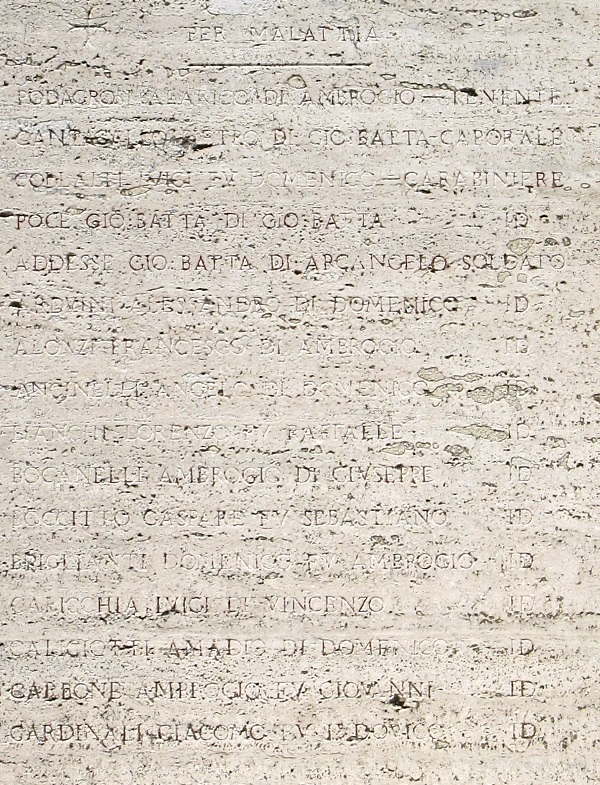 PER MALATTIA
PODAGROSI ALARICO DI AMBROGIO — TENENTE
CANTAGALLO PIETRO DI GIO·BATTA·CAPORALE
COLLALTI LUIGI FV DOMENICO — CARABINIERE
POCE GIO·BATTA DI GIO·BATTA ID
ADDESSE GIO·BATTA DI ARCANGELO SOLDATO
ARDVINI ALESSANDRO DI DOMENICO ID
ALONZI FRANCESCO DI AMBROGIO ID
ANGINELLI ANGELO DI DOMENICO ID
BIANCHI LORENZO FV RAFFAELE ID
BOCANELLI AMBROGIO DI GIVSEPPE ID
GASPARE FV SEBASTIANO ID
BRIGLIANTI DOMENICO FV AMBROGIO ID
CARICCHIA LVIGI DI VINCENZO ID
CALICIOTTI AMADIO DI DOMENICO ID
CARBONE AMBROGIO FV GIOVANNI ID
CARDINALI GIACOMO FV LODOVICO ID